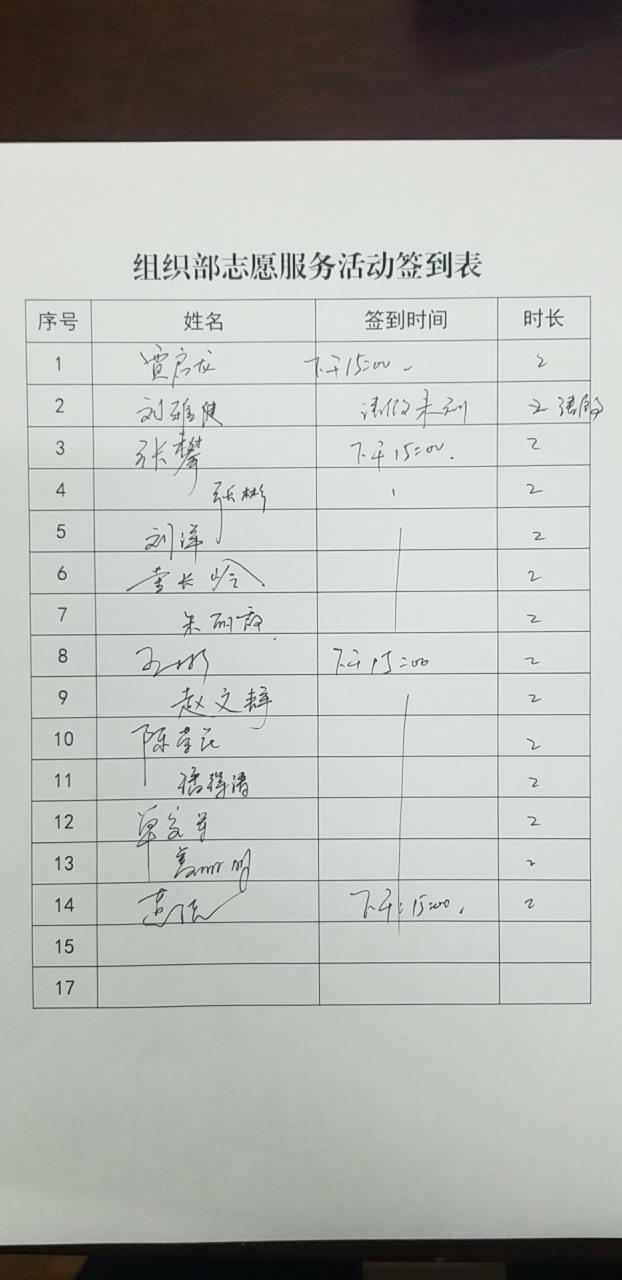 组织部志愿服务活动签到表
序号 姓名 签到时间 时长
1 贾启龙 下午15:00 2
2 刘雅健 请假未到 2 请假
3 张攀 下午15:00. 2
4 张彬 2
5 刘洋 2
6 董长岭 2
7 朱 2
8 下午15:00 2
9 赵文辉 2
10 陈 2
11 2
12 2
13 2
14 下午:15:00. 2
15
17